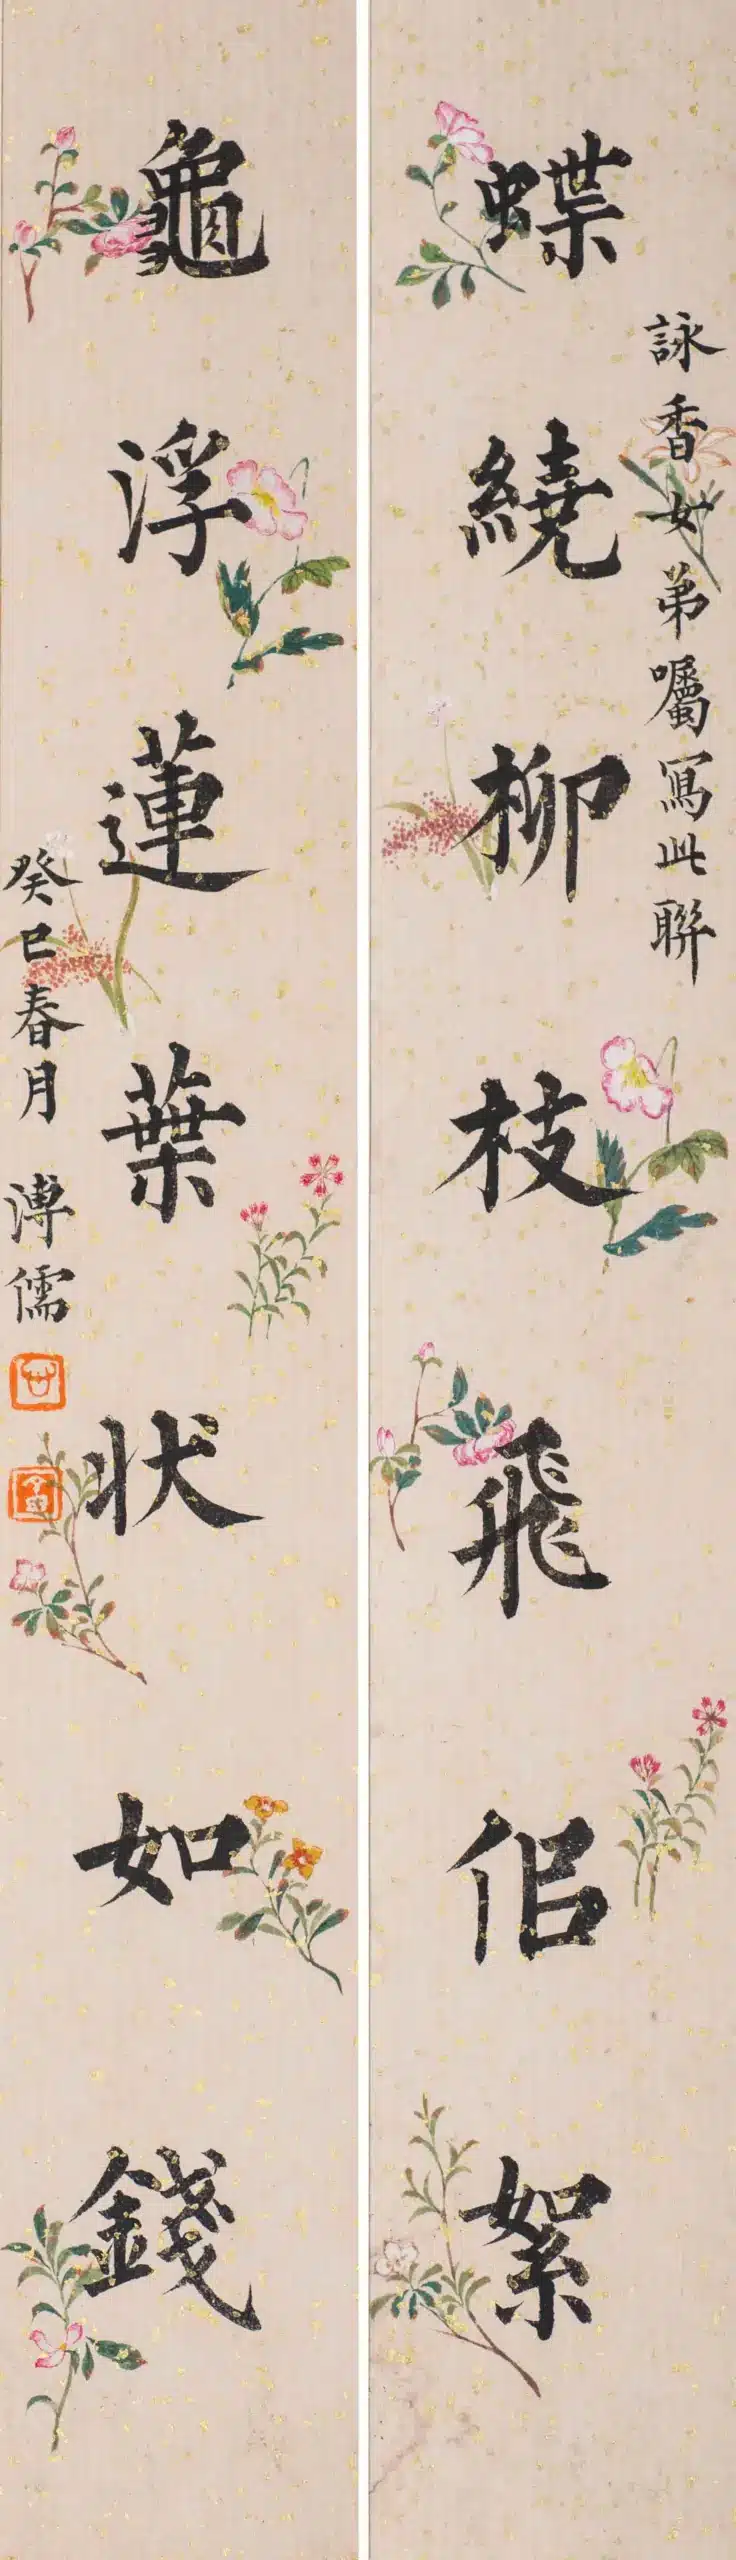 詠香女弟囑冩此聯
蝶繞柳枝飛佀絮
龜浮蓮葉狀如錢
癸巳春月 溥儒